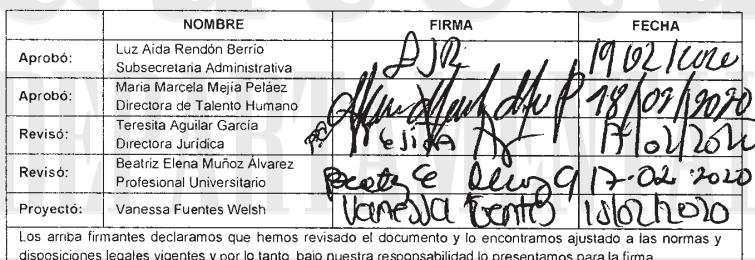 NOMBRE FIRMA FECHA
Aprobó: Luz Aida Rendón Berrio
Subsecretaria Administrativa 19/02/2020
Aprobó: Maria Marcela Mejía Peláez
Directora de Talento Humano 18/02/2020
Revisó: Teresita Aguilar García
Directora Jurídica 17/02/2020
Revisó: Beatriz Elena Muñoz Álvarez
Profesional Universitario 17-02-2020
Proyectó: Vanessa Fuentes Welsh Vanessa Fuentes 13/02/2020
Los arriba firmantes declaramos que hemos revisado el documento y lo encontramos ajustado a las normas y
disposiciones legales vigentes y por lo tanto, bajo nuestra responsabilidad lo presentamos para la firma.